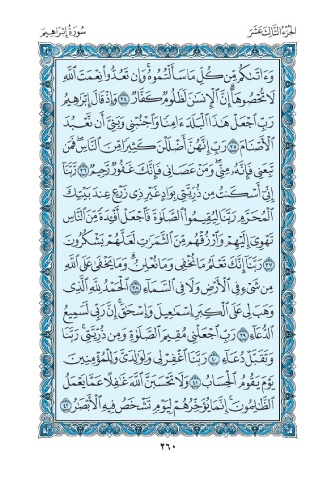 الجزء الثالث عشر
سورة إبراهيم
وَءَاتَىٰكُم مِّن كُلِّ مَا سَأَلْتُمُوهُ ۚ وَإِن تَعُدُّوا۟ نِعْمَتَ ٱللَّهِ
لَا تُحْصُوهَآ ۗ إِنَّ ٱلْإِنسَٰنَ لَظَلُومٌ كَفَّارٌ ٣٤ وَإِذْ قَالَ إِبْرَٰهِيمُ
رَبِّ ٱجْعَلْ هَٰذَا ٱلْبَلَدَ ءَامِنًا وَٱجْنُبْنِى وَبَنِىَّ أَن نَّعْبُدَ
ٱلْأَصْنَامَ ٣٥ رَبِّ إِنَّهُنَّ أَضْلَلْنَ كَثِيرًا مِّنَ ٱلنَّاسِ ۖ فَمَن
تَبِعَنِى فَإِنَّهُۥ مِنِّى ۖ وَمَنْ عَصَانِى فَإِنَّكَ غَفُورٌ رَّحِيمٌ ٣٦ رَّبَّنَآ
إِنِّىٓ أَسْكَنتُ مِن ذُرِّيَّتِى بِوَادٍ غَيْرِ ذِى زَرْعٍ عِندَ بَيْتِكَ
ٱلْمُحَرَّمِ رَبَّنَا لِيُقِيمُوا۟ ٱلصَّلَوٰةَ فَٱجْعَلْ أَفْـِٔدَةً مِّنَ ٱلنَّاسِ
تَهْوِىٓ إِلَيْهِمْ وَٱرْزُقْهُم مِّنَ ٱلثَّمَرَٰتِ لَعَلَّهُمْ يَشْكُرُونَ
٣٧ رَبَّنَآ إِنَّكَ تَعْلَمُ مَا نُخْفِى وَمَا نُعْلِنُ ۗ وَمَا يَخْفَىٰ عَلَى ٱللَّهِ
مِن شَىْءٍ فِى ٱلْأَرْضِ وَلَا فِى ٱلسَّمَآءِ ٣٨ ٱلْحَمْدُ لِلَّهِ ٱلَّذِى
وَهَبَ لِى عَلَى ٱلْكِبَرِ إِسْمَٰعِيلَ وَإِسْحَٰقَ ۚ إِنَّ رَبِّى لَسَمِيعُ
ٱلدُّعَآءِ ٣٩ رَبِّ ٱجْعَلْنِى مُقِيمَ ٱلصَّلَوٰةِ وَمِن ذُرِّيَّتِى ۚ رَبَّنَا
وَتَقَبَّلْ دُعَآءِ ٤٠ رَبَّنَا ٱغْفِرْ لِى وَلِوَٰلِدَىَّ وَلِلْمُؤْمِنِينَ
يَوْمَ يَقُومُ ٱلْحِسَابُ ٤١ وَلَا تَحْسَبَنَّ ٱللَّهَ غَٰفِلًا عَمَّا يَعْمَلُ
ٱلظَّٰلِمُونَ ۚ إِنَّمَا يُؤَخِّرُهُمْ لِيَوْمٍ تَشْخَصُ فِيهِ ٱلْأَبْصَٰرُ ٤٢
٢٦٠